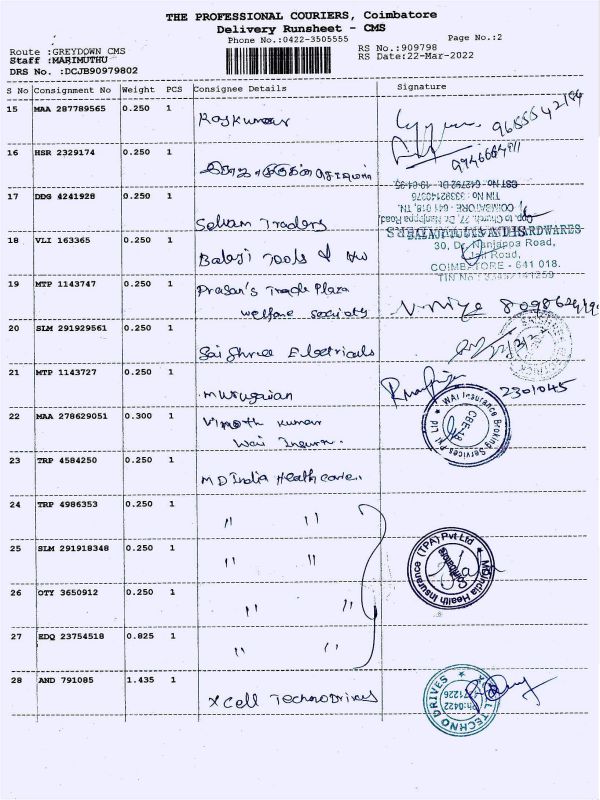 THE PROFESSIONAL COURIERS, Coimbatore
Delivery Runsheet - CMS
Phone No.:0422-3505555
Page No.:2
Route :GREYDOWN CMS
RS No.:909798
Staff :MARIMUTHU
RS Date:22-Mar-2022
DRS No. :DCJB90979802
S No Consignment No Weight PCS Consignee Details Signature
15 MAA 287789565 0.250 1 Rajkumar
16 HSR 2329174 0.250 1
CST No: 642792 Dt.
TIN No: 33392140376
COIMBATORE - 641 018, TN.
Opp. to Church, 77, Dr. Nanjappa Road,
17 DDG 4241928 0.250 1 Soham Traders
18 VLI 163365 0.250 1 Balaji Tools & HW
BALAJI TOOLS & HARDWARES
30, Dr. Nanjappa Road,
Jail Road,
COIMBATORE - 641 018.
19 MTP 1143747 0.250 1 Prasan's Trade Plaza
welfare society
20 SLM 291929561 0.250 1 Sai Shree Electricals
21 MTP 1143727 0.250 1 Murugaian
2301045
22 MAA 278629051 0.300 1 Vinoth Kumar
Wai Insurn.
WAI Insurance Broking Services Pvt. Ltd
CBE
23 TRP 4584250 0.250 1 MD India Healthcare.
24 TRP 4986353 0.250 1 " "
25 SLM 291918348 0.250 1 " "
MDIndia Health Insurance (TPA) Pvt Ltd
Coimbatore
26 OTY 3650912 0.250 1 " "
27 EDQ 23754518 0.825 1 " "
28 AND 791085 1.435 1 X Cell TechnoDrives
TECHNO DRIVES
Ph:0422